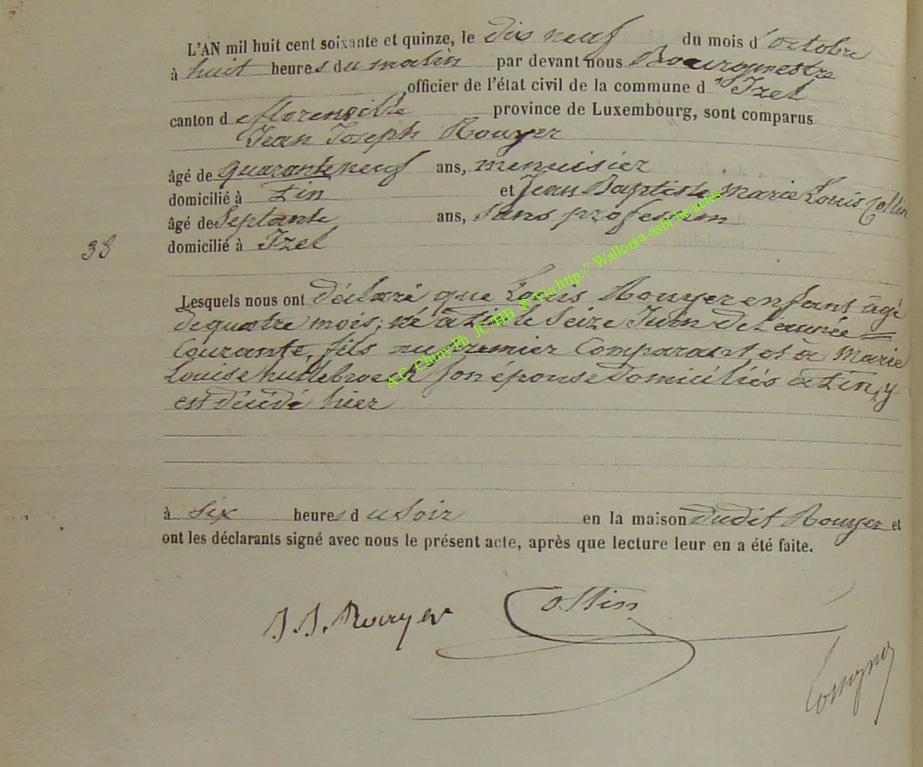 L'AN mil huit cent soixante et quinze, le dix neuf du mois d'octobre
à huit heures du matin par devant nous Bourgmestre
officier de l'état civil de la commune d'Izel
canton de florenville province de Luxembourg, sont comparus
Jean Joseph Rouyer
âgé de quarante neuf ans, menuisier
domicilié à Pin et Jean Baptiste Marie Louis Collin
âgé de Septante ans, Sans profession
domicilié à Izel
38
Lesquels nous ont déclaré que Louis Rouyer enfant âgé
de quatre mois, né à Pin le Seize Juin de L'année
Courante, fils du premier Comparant et de Marie
Louise Son épouse Domiciliés à Pin, y
est décédé hier
à Six heures du Soir en la maison dudit Rouyer et
ont les déclarants signé avec nous le présent acte, après que lecture leur en a été faite.
J. J. Rouyer Collin
A.C. Chiny Ph JC-HB © via http:// Wallonia-asbl.eu/actes